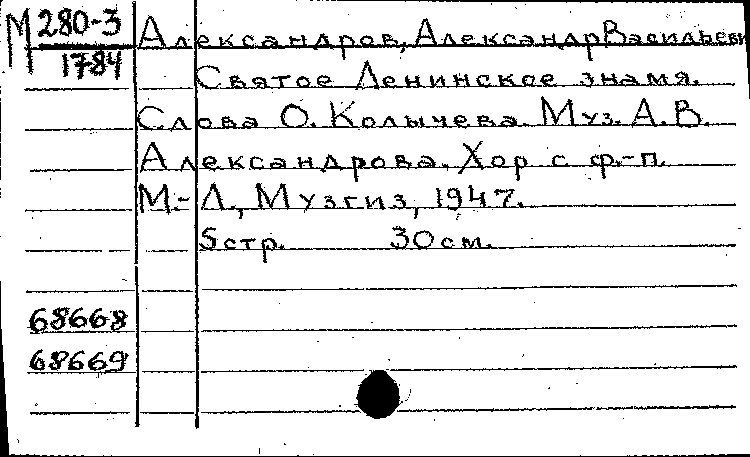 М 280-3 Александров, Александр Васильевич
1784
Святое Ленинское знамя.
Слова О. Колычева. Муз. А. В.
Александрова. Хор с ф.-п.
М.- Л., Музгиз, 1947.
5 стр. 30 см.
68668
68669